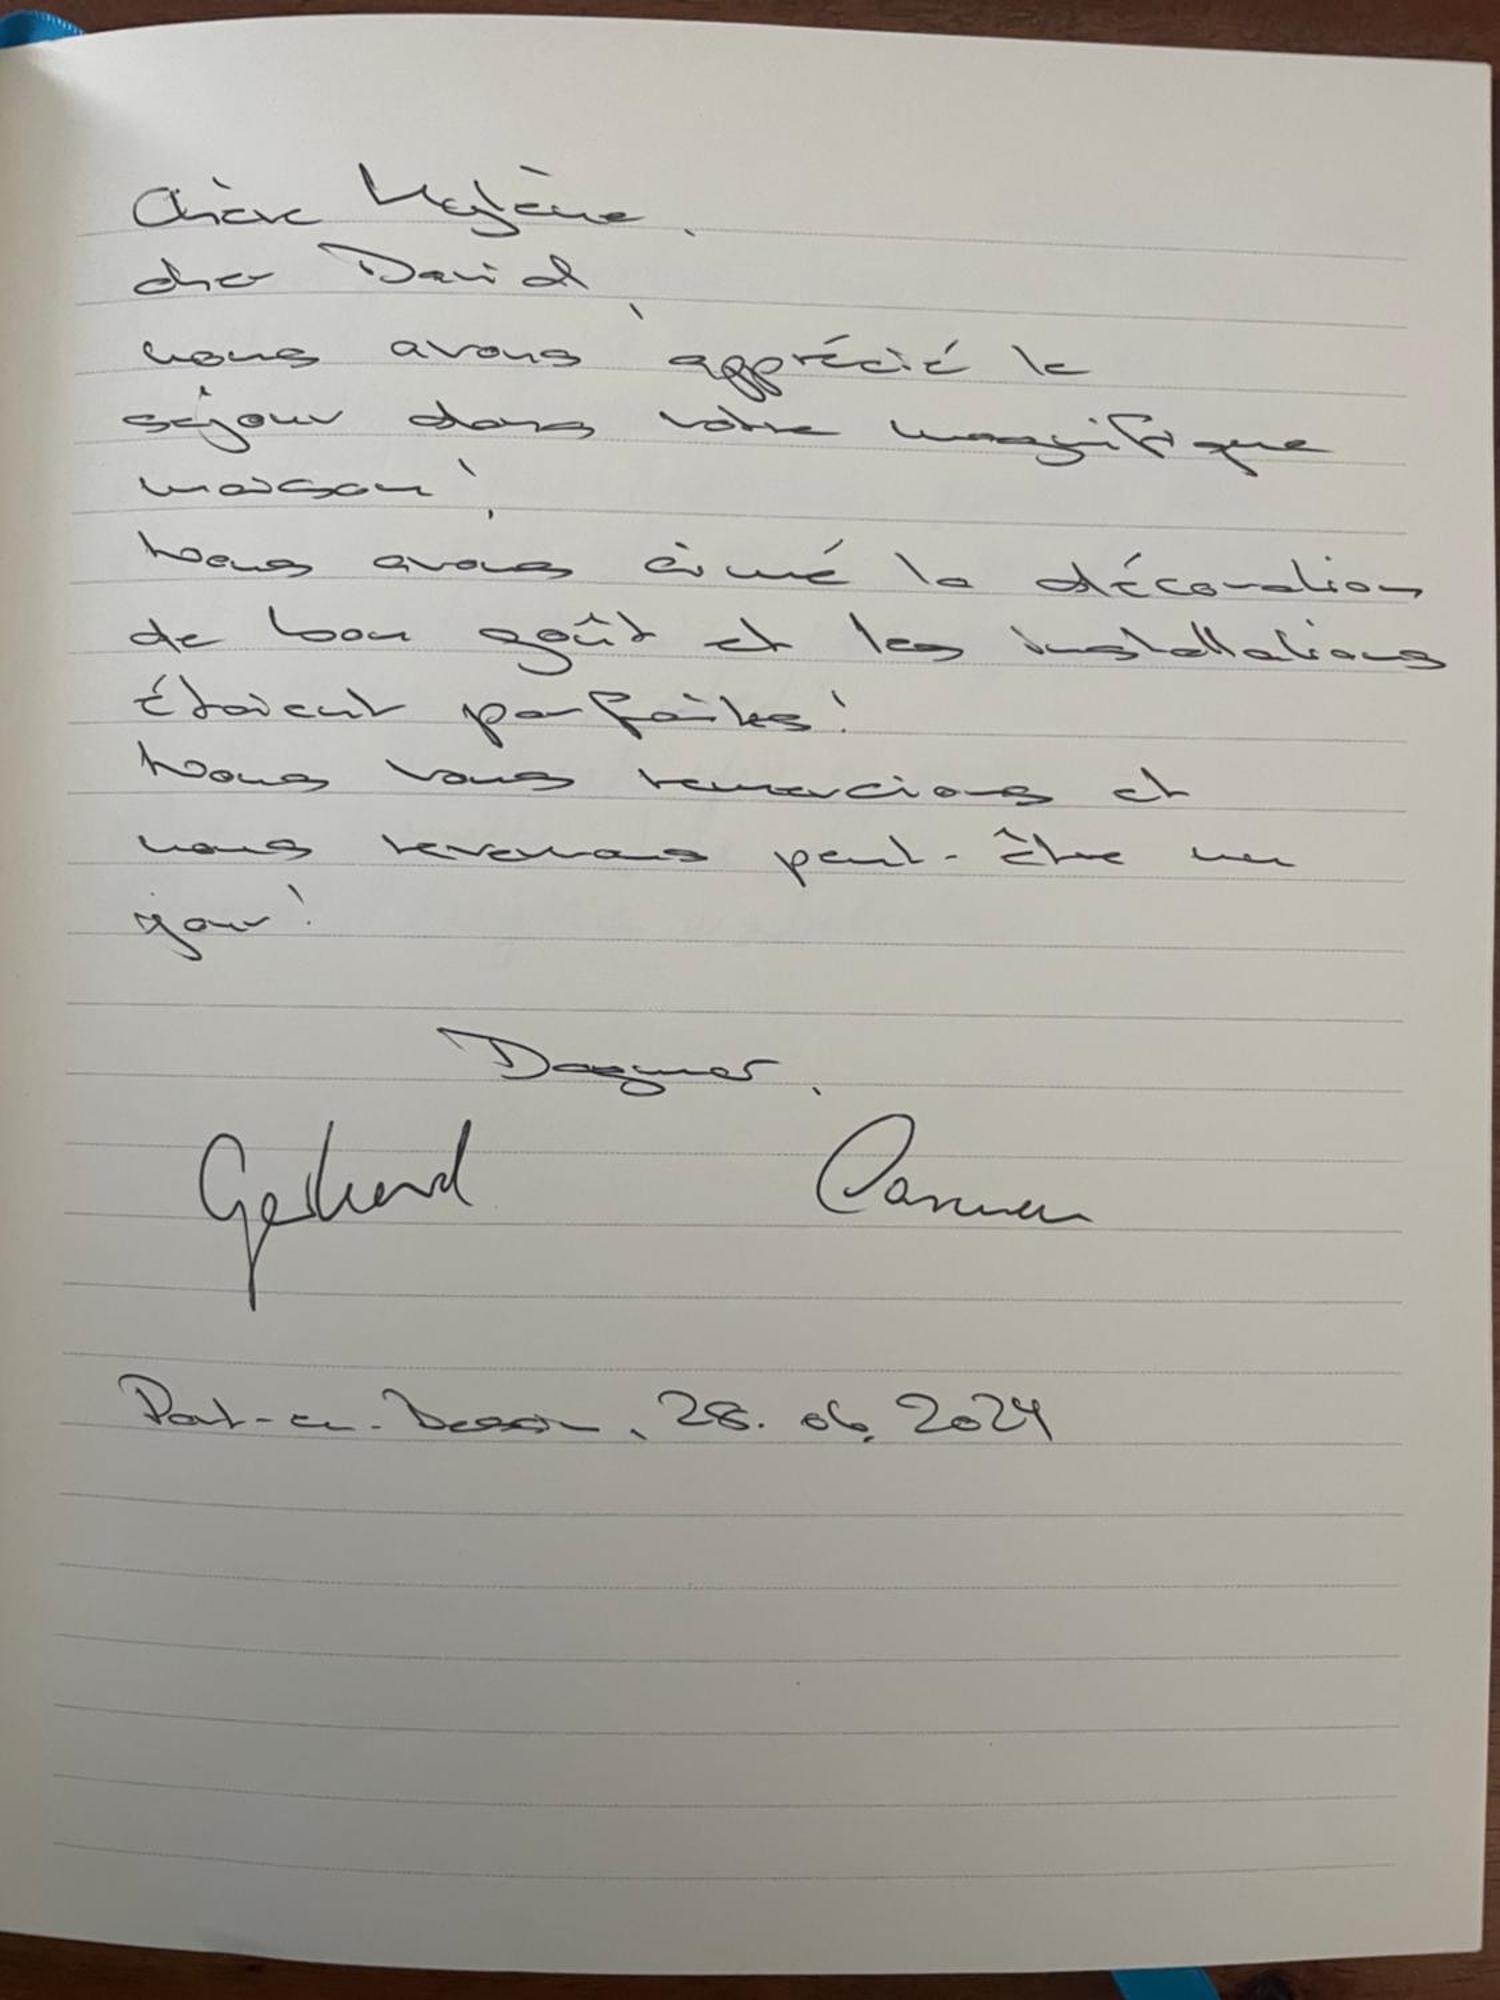 Chère Maylène,
cher David,
nous avons apprécié le
séjour dans votre magnifique
maison!
Nous avons aimé la décoration
de bon goût et les installations
étaient parfaites!
Nous vous remercions et
nous revenons peut-être un
jour!
Dagmar,
Gerhard Carmen
Port-en-Bessin, 28.06.2024